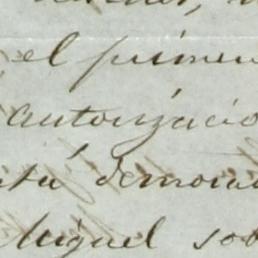 el primer
autorizacio
demora
Miguel sob